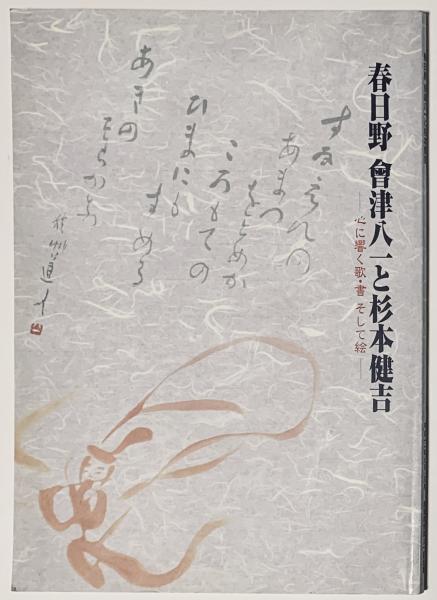 春日野 會津八一と杉本健吉
―心に響く歌・書 そして絵―
すゐえんの
あまつ
をとめか
ころもての
ひまにも
すめる
あきの
そらかな
秋艸道人